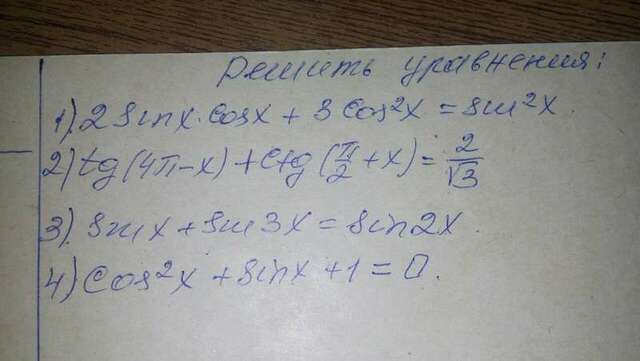 Решить уравнения:
1). 2 sin x · cos x + 3 cos²x = sin²x.
2) tg(4π-x) + ctg(π/2 + x) = 2/√3
3). sin x + sin 3x = sin 2x.
4) cos²x + sin x + 1 = 0.